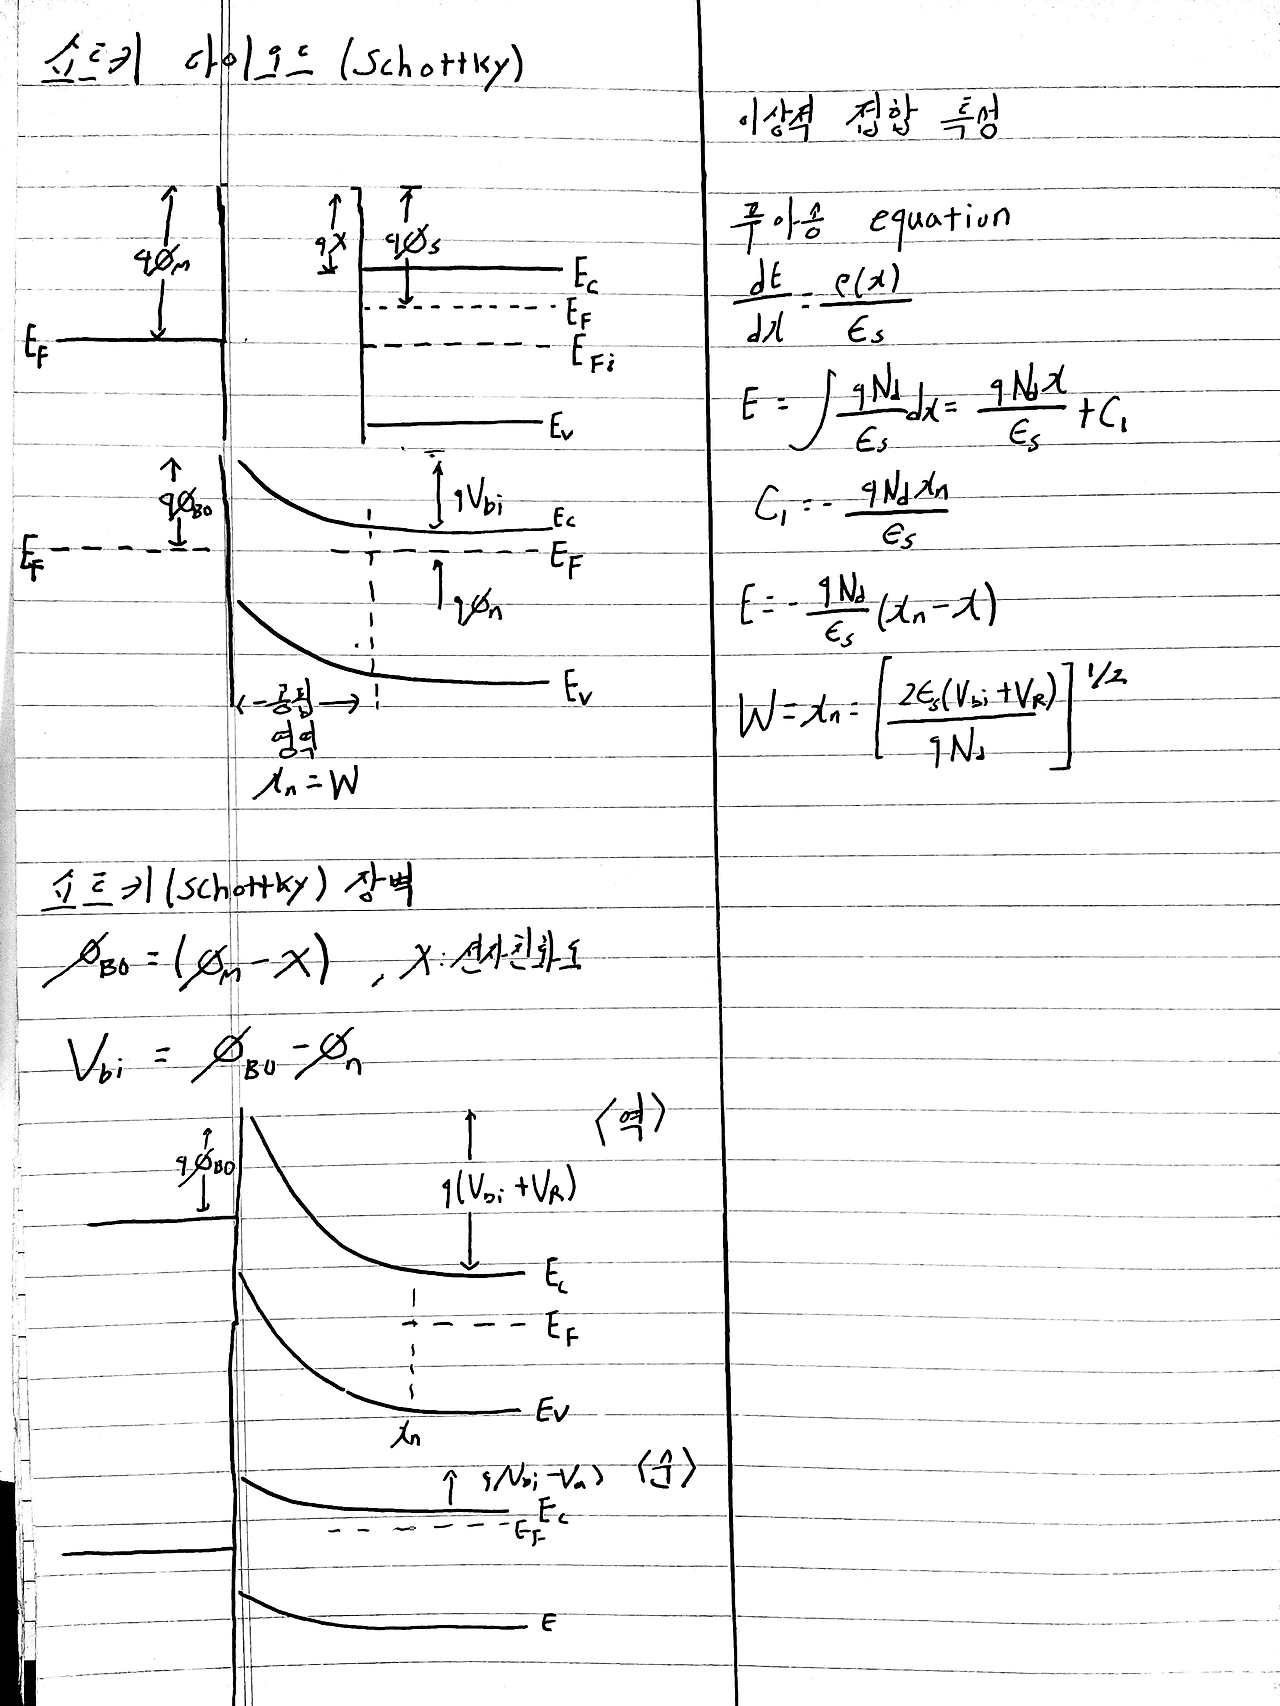 쇼트키 다이오드 (Schottky)
qφm
qχ
qφs
Ec
EF
EFi
EF
Ev
qφB0
qVbi
Ec
EF
EF
qφn
Ev
공핍
영역
xn = W
쇼트키(schottky) 장벽
φB0 = (φm - χ) , χ: 전자친화도
Vbi = φB0 - φn
<역>
qφB0
q(Vbi + VR)
Ec
EF
Ev
xn
q(Vbi - Va) <순>
Ec
EF
E
이상적 접합 특성
푸아송 equation
dE/dx = ρ(x)/ϵs
E = ∫ qNd/ϵs dx = qNdx/ϵs + C1
C1 = - qNdxn/ϵs
E = - qNd/ϵs (xn - x)
W = xn = [2ϵs(Vbi + VR)/qNd]^1/2